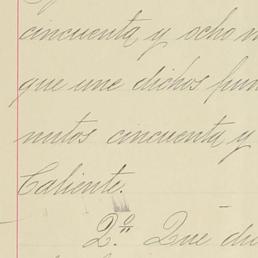 cincuenta y ocho
que une dichos
nutos cincuenta y
Caliente.
2º. Que